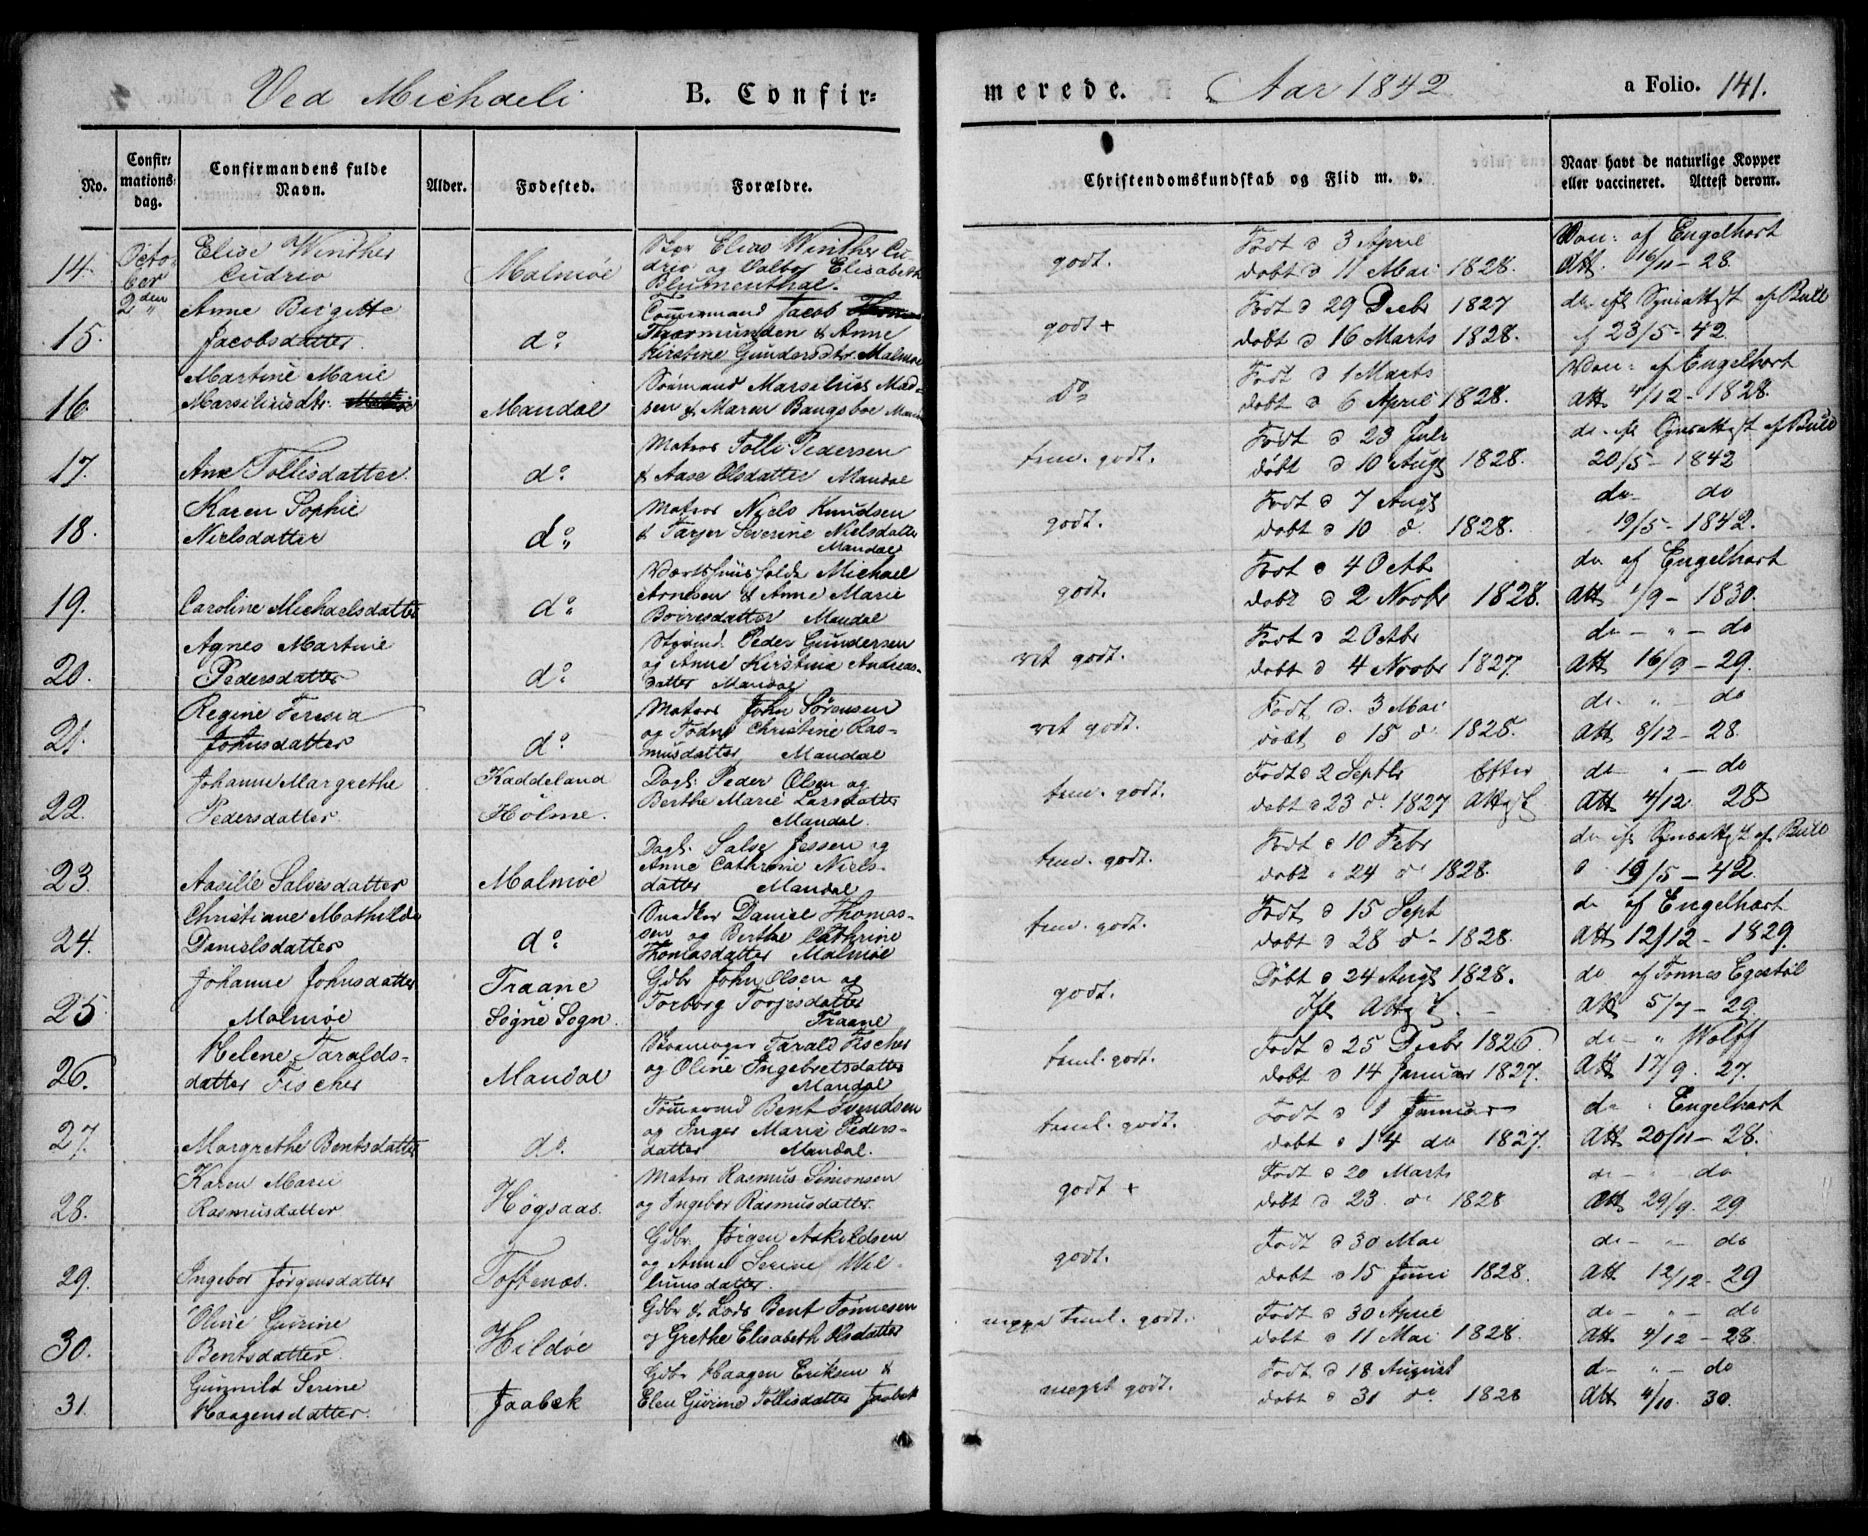 Ved Michaeli B. Confir= merede. Aar 1842 a Folio. 141.
No. Confir= mations= dag. Confirmandens fulde Navn. Alder. Fødested. Forældre. Christendomskundskab og Flid m. v. Naar havt de naturlige Kopper eller vaccineret. Attest derom.
14. Octo-
ber
2den
Elise Winther
Cudrio
Malmøe
Elias Winther Cu-
drio og Valbor Elisabeth
Blumenthal.
godt.
Født d 3 April
døbt d 11 Mai 1828.
Vac: af Engelhart
Att. 16/11 - 28.
15. Anne Birgitte
Jacobsdatter.
do
Tømmermand Jacob
Thormundsen & Anne
Kirstine Gundersdtr. Malmøe
godt +
Født d 29 Decbr 1827
døbt d 16 Marts 1828.
do efl Synsattest af Bull
af 23/5 - 42.
16. Martine Marie
Marsiliusdtr.
Mandal
Søemand Marsilius Mad-
sen & Maren Bangsboe
do
Født d 1 Marts
døbt d 6 April 1828.
Vac: af Engelhart
Att 4/12 - 1828.
17. Ane Tollisdatter.
do
Matros Tolli Pedersen
& Aase Olsdatter Mandal
teml. godt.
Født d 23 Juli
døbt d 10 Augs 1828.
do efl Synsattest af Bull
20/5 - 1842
18. Karen Sophie
Nielsdatter
do
Matros Niels Knudsen
& Tarjer Severine Nielsdatter
Mandal
godt.
Født d 7 Augs
døbt d 10 d. 1828.
do do
19/5 - 1842.
19. Caroline Michaelsdatter
do
Værtshuusholder Michael
Arnesen & Anne Marie
Boiresdatter Mandal
godt.
Født d 4 Octbr
døbt d 2 Novbr 1828.
do af Engelhart
Att 1/9 - 1830.
20. Agnes Martine
Pedersdatter
do
Styrmd. Peder Gundersen
og Anne Kirstina Andreas-
datter Mandal
ret godt.
Født d 2 Octbr
døbt d 4 Novbr 1827.
do - " - do
Att 16/9 - 29.
21. Regine Teresia
Johnsdatter
do
Matros John Sørensen
og Todne Christine Ras-
musdatter Mandal
ret godt.
Født d. 3 Mai
døbt d 15 d. 1828.
do - " - do
Att 8/12 - 28.
22. Johanne Margrethe
Pedersdatter.
Kaddeland
Holme.
Dagl: Peder Olsen og
Berthe Marie Larsdatter
Mandal.
teml. godt.
Født d 2 Septbr Efter
døbt d 23 do 1827 Attest
do - " - do
Att 4/12 28
23. Aasille Salvesdatter
Malmøe
Dagl: Salve Jessen og
Anne Cathrine Niels-
datter Mandal
teml. godt.
Født d 10 Febr
døbt d 24 d 1828.
do efl Synsattest af Bull
d 19/5 - 42.
24. Christiane Mathilde
Danielsdatter
do
Snedker Daniel Thomas-
sen og Berthe Cathrine
Thomasdatter Malmøe
teml. godt.
Født d 15 Sept
døbt d 28 d - 1828.
do af Engelhart
Att 12/12 - 1829.
25 Johanne Johnsdatter
Malmøe
Traane
Søgne Sogn.
Gdbr John Olsen og
Torborg Torjesdatter
Traane
godt.
Døbt d 24 Augs 1828.
Ifl Attest.
do af Tønnes Egestøl
Att 5/7 - 29.
26. Helene Taralds-
datter Fischer
Mandal
Skoemager Tarald Fischer
og Oline Ingebretsdatter
Mandal
teml. godt.
Født d 25 Decbr 1826
døbt d 14 Januar 1827.
do - " Wolff
Att 17/9. 27.
27. Margrethe Bentsdatter
do.
Tømmermd Bent Svendsen
og Inger Marie Peders-
datter Mandal.
teml. godt.
Født d 1 Januar
døbt d 14 do 1827.
do " Engelhart
Att 20/11 - 28.
28. Karen Marie
Rasmusdatter
Høgsaas.
Matros Rasmus Simonsen
og Ingebor Rasmusdatter.
godt +
Født d 20 Marts
døbt d 23 d. 1828
do - " do
Att 29/9. 29
29. Ingebor Jørgensdatter
Toftenæs.
Gdbr. Jørgen Askildsen
og Anne Serine Wil-
lumsdatter.
godt.
Født d 30 Mai
døbt d 15 Juni 1828.
do - - do
Att 12/12 - 29
30. Oline Gurine
Bentsdatter
Hildøe
Gdbr & Lods Bent Tønnesen
og Grethe Elisabeth Olsdatter
neppe teml. godt.
Født d 30 April
døbt d 11 Mai 1828.
do - " - do
Att 4/12 - 28.
31. Gunnild Serine
Haagensdatter.
Jaabæk
Gdbr Haagen Eriksen &
Elen Gurine Tollisdatter Jaabek
meget godt.
Født d 18 August
døbt d 31 do 1828
do - " - do
Att 4/10. 30.